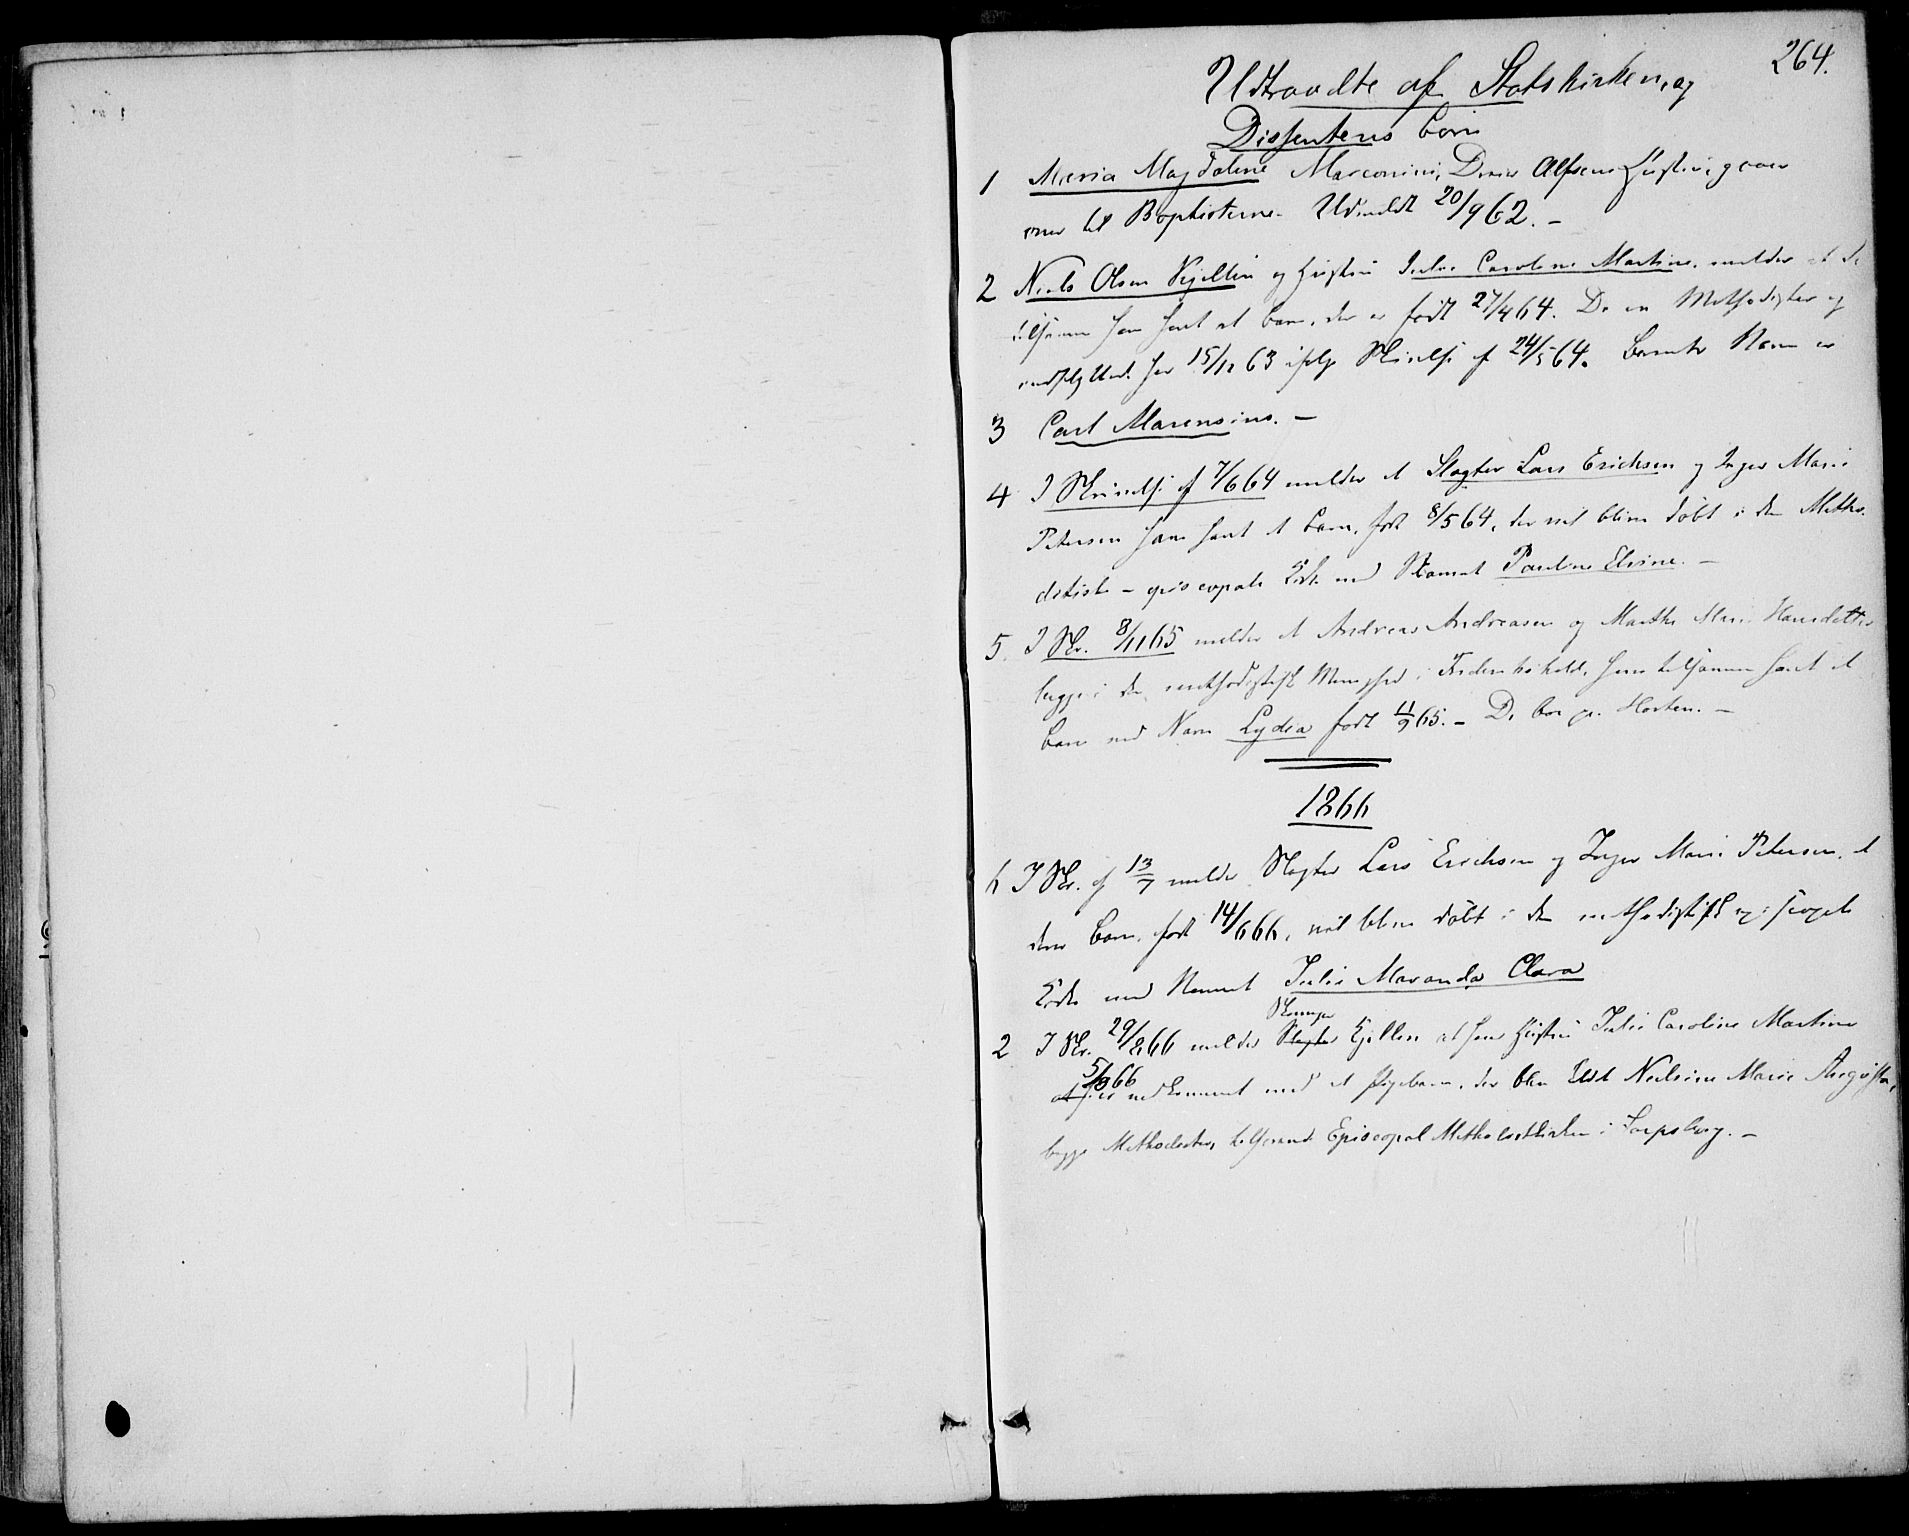 264.
Udtraadte af Statskirken, og
Dissenteres Børn
1 Maria Magdalene Marconini, Alfsens Hustru, gaaer
over til Baptisterne. Udmeldt 20/9 62. –
2 Niels Olsen Kjellin og Hustru Julie Caroline Martine, melder at de
tilsammen have havt et Barn, der er født 27/4 64. De er Methodister og
indflyttede her 15/11 63 ifølge Skrivelse af 24/5 64. Barnets Navn er
3 Carl Marensius. –
4 I Skrivelse af 7/6 64 melder at Slagter Lars Erichsen og Inger Marie
Petersen have havt et Barn, født 8/5 64, der vil blive døbt i den Metho-
distisk – episcopale Kirke med Navnet Pauline Elvine. –
5. I Skr. 8/11 65 melder at Andreas Andreasen og Marthe Marie Hansdatter
begge i den methodistiske Menighed i Frederikshald, have tilsammen havt et
Barn ved Navn Lydia født 11/9 65. – De bor p. Horten. –
1866
6 I Skr. af 13/7 melder Slagter Lars Erichsen og Inger Marie Petersen, at
deres Barn, født 14/6 66, vil blive døbt i den methodistisk episcopale
Kirke med Navnet Julie Maranda Clara
2 I Skr. 29/8 66 melder Slagter Kjellin at hans Hustru Julie Caroline Martine
5/8 66
at f. er nedkommet med et Pigebarn, der blev kaldt Neilsine Marie Augusta,
begge Methodister, tilhørende Episcopal Methodistkirken i Sarpsborg. –